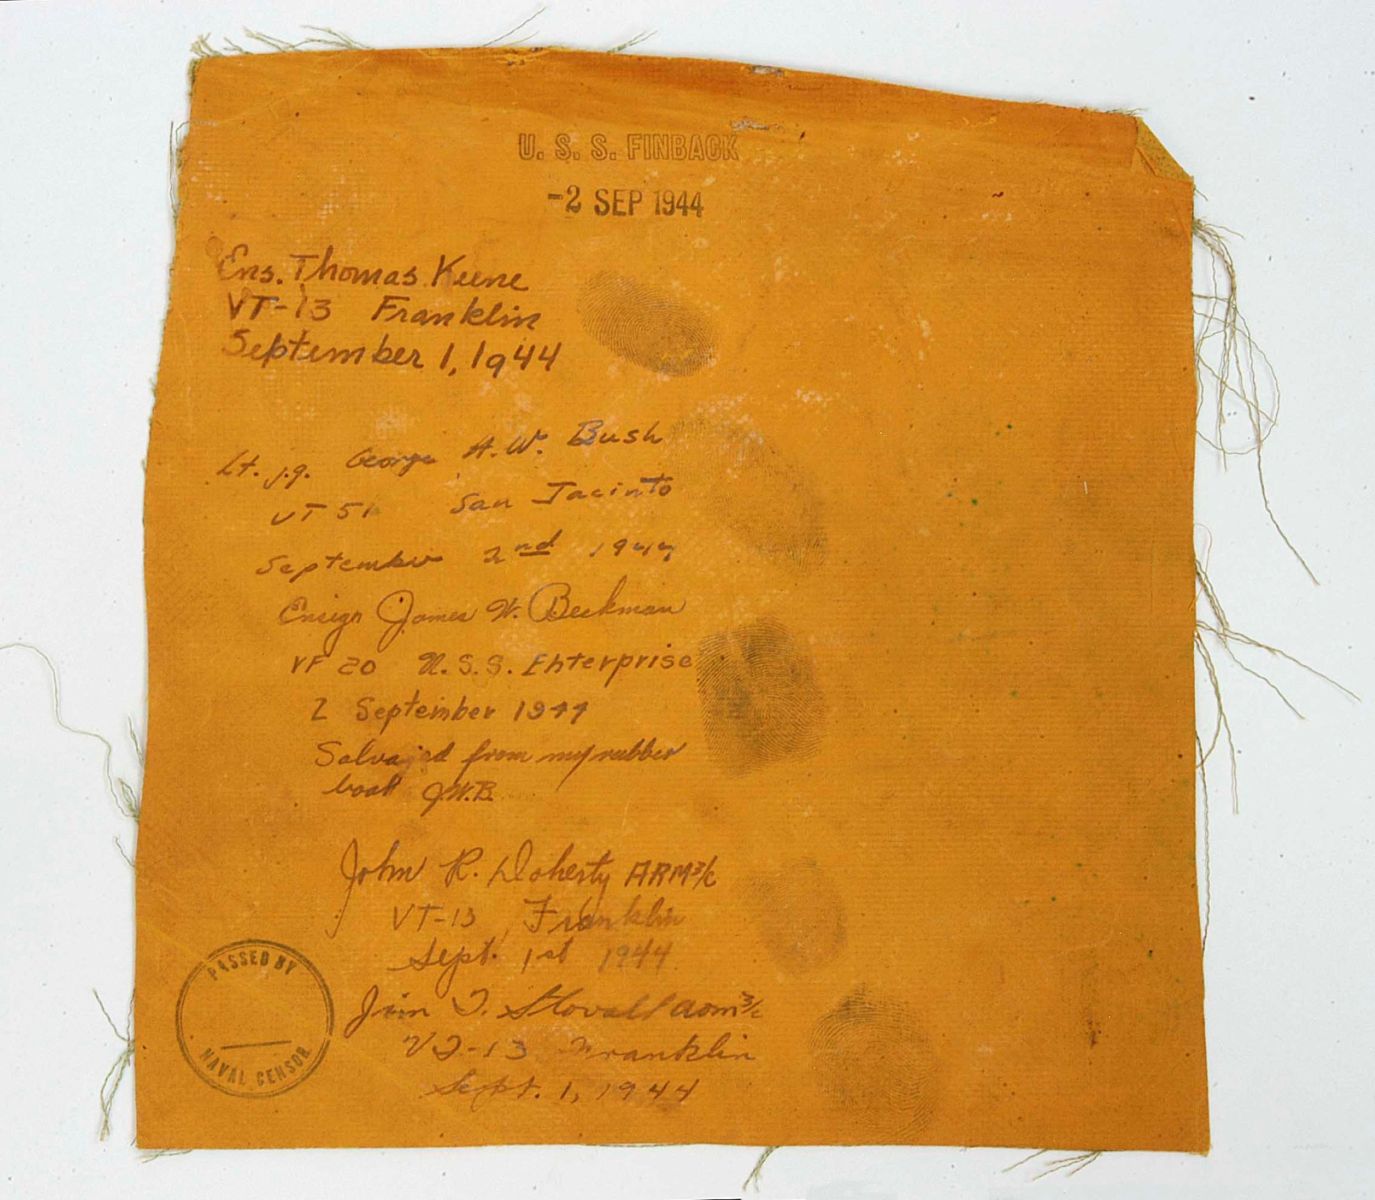 U. S. S. FINBACK
-2 SEP 1944
Ens. Thomas Keene
VT-13 Franklin
September 1, 1944
Lt. j.g. George H.W. Bush
VT 51 San Jacinto
September 2nd 1944
Ensign James W. Beckman
VF 20 U.S.S. Enterprise
2 September 1944
Salvaged from my rubber
boat J.W.B.
John R. Doherty ARM3/c
VT-13 Franklin
Sept. 1st 1944
Jim T. Stovall aom3/c
VT-13 Franklin
Sept. 1, 1944
PASSED BY
NAVAL CENSOR